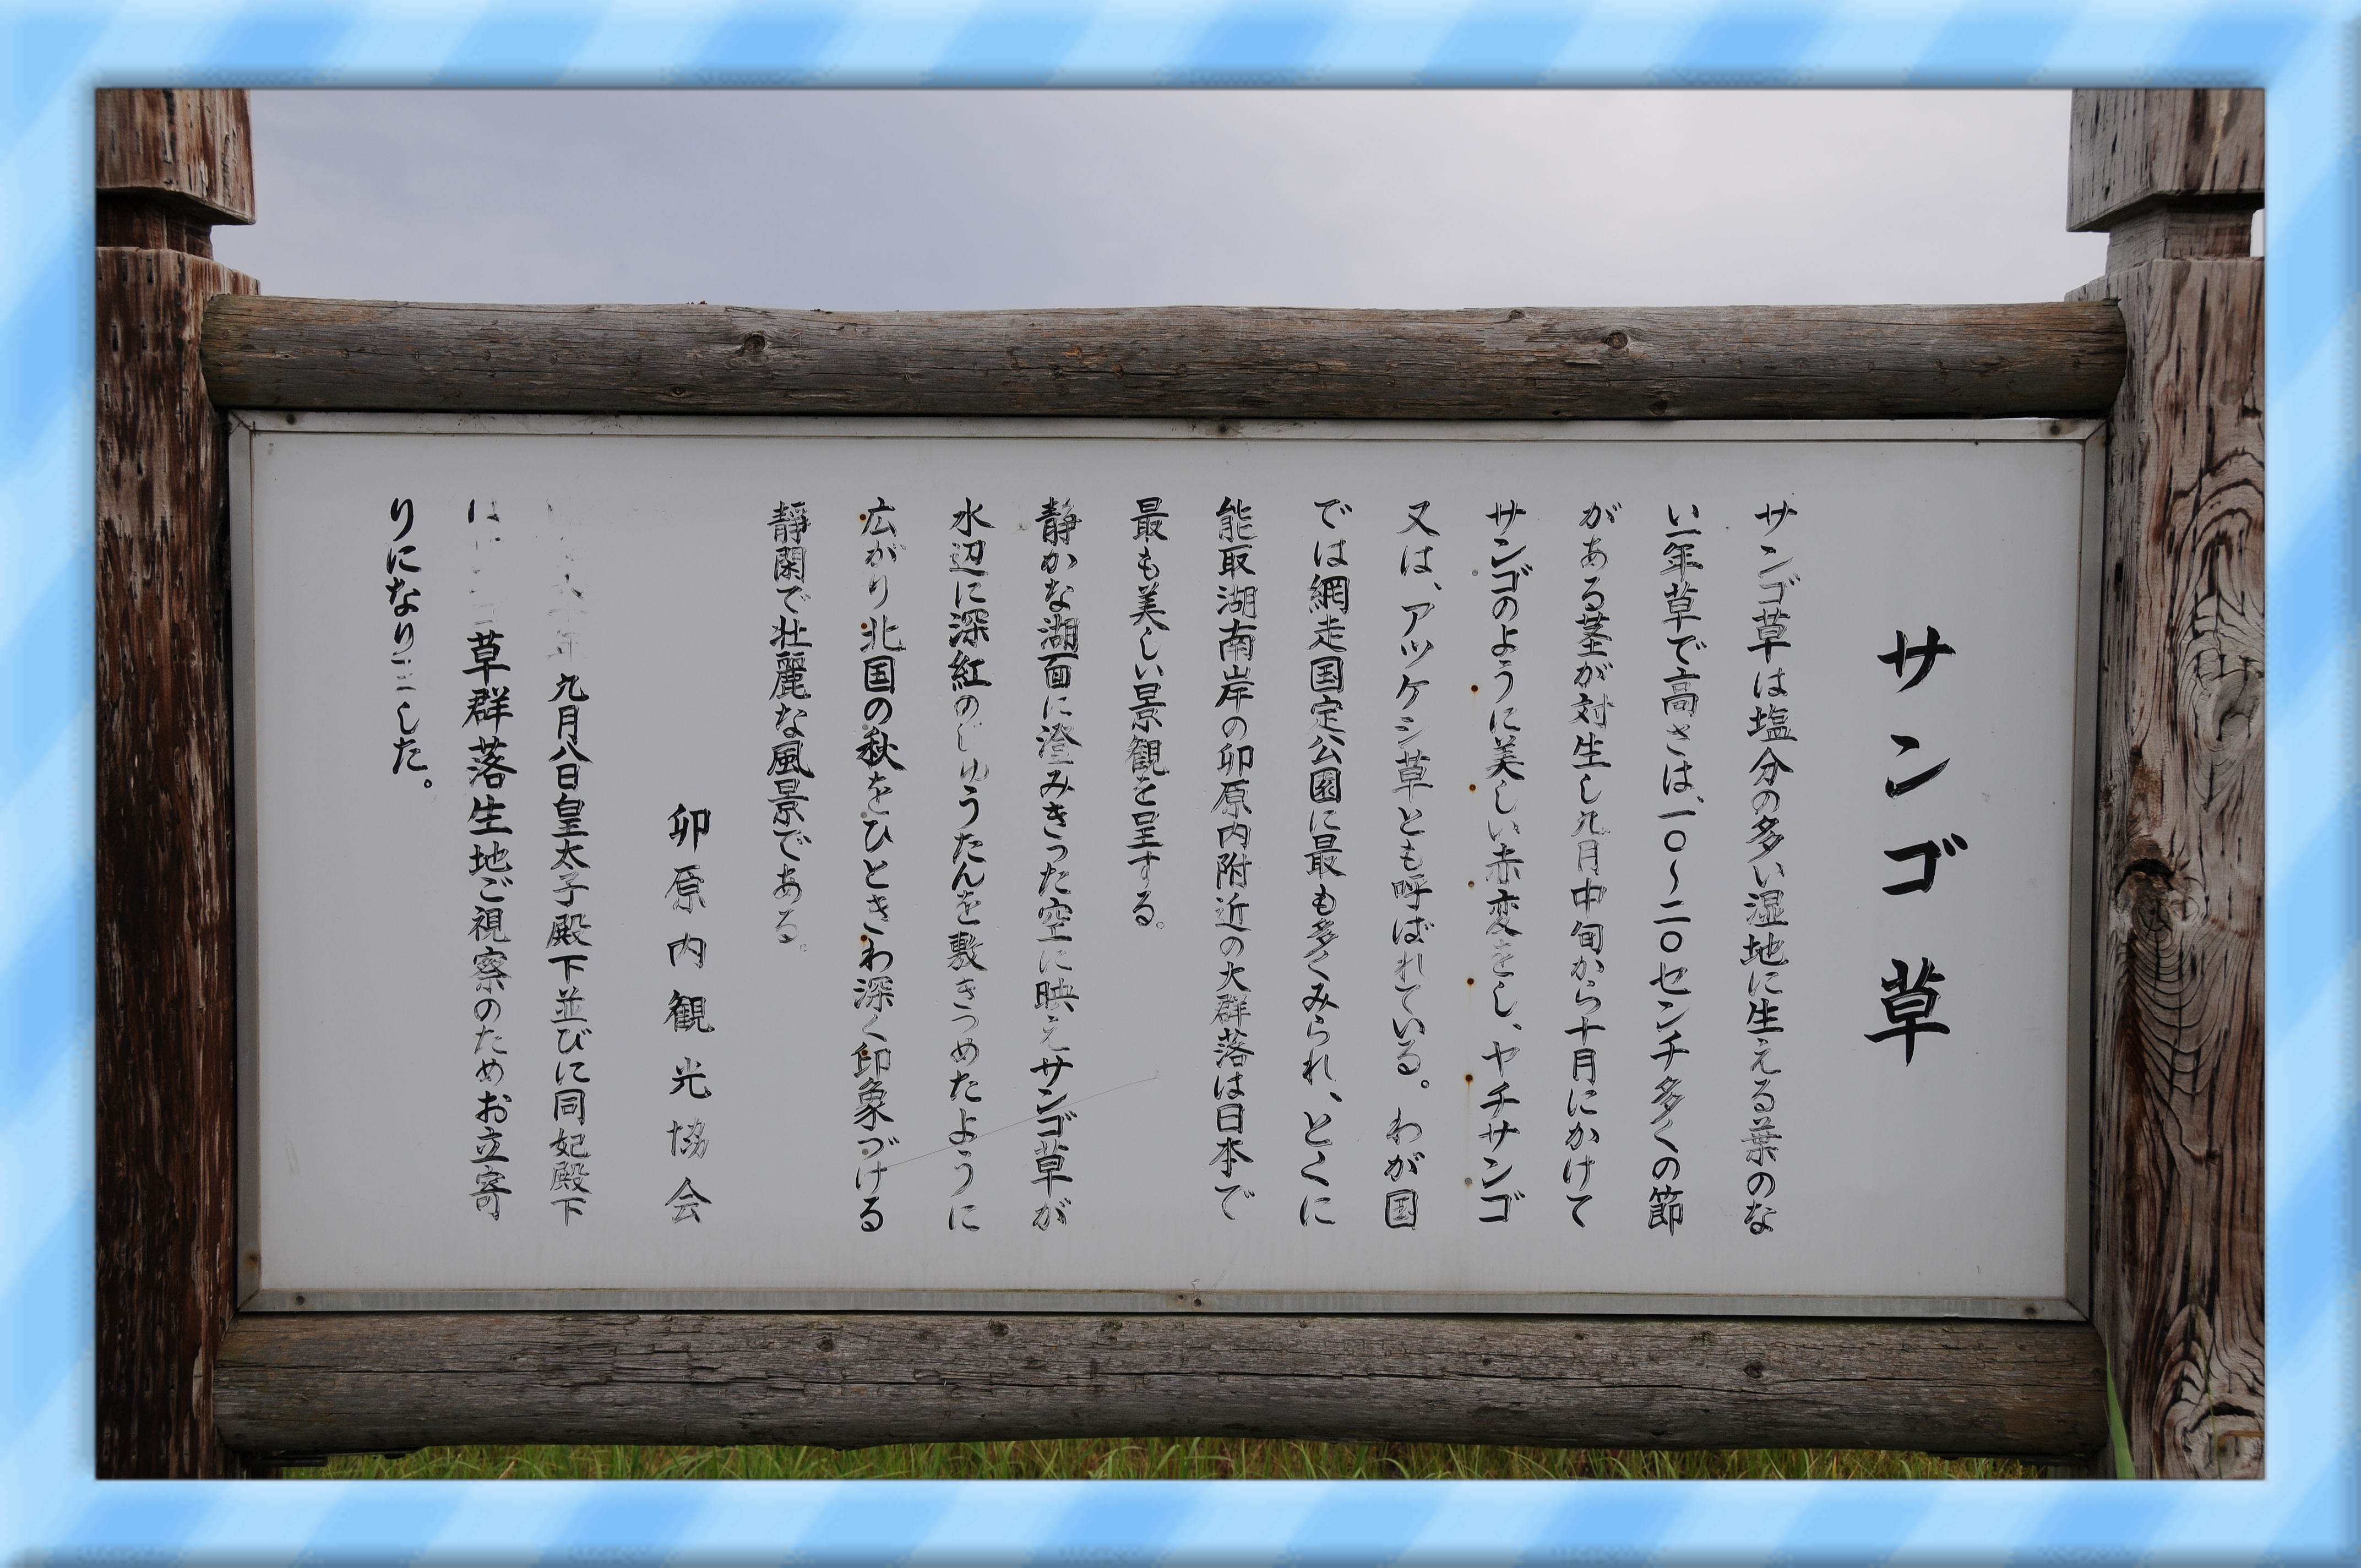 サンゴ草
サンゴ草は塩分の多い湿地に生える葉のな
い一年草で高さは、一〇〜二〇センチ多くの節
がある茎が対生し九月中旬から十月にかけて
サンゴのように美しい赤変をし、ヤチサンゴ
又は、アツケシ草とも呼ばれている。わが国
では網走国定公園に最も多くみられ、とくに
能取湖南岸の卯原内附近の大群落は日本で
最も美しい景観を呈する。
静かな湖面に澄みきった空に映えサンゴ草が
水辺に深紅のじゅうたんを敷きつめたように
広がり北国の秋をひときわ深く印象づける
静閑で壮麗な風景である。
卯原内観光協会
年九月八日皇太子殿下並びに同妃殿下
草群落生地ご視察のためお立寄
りになりました。